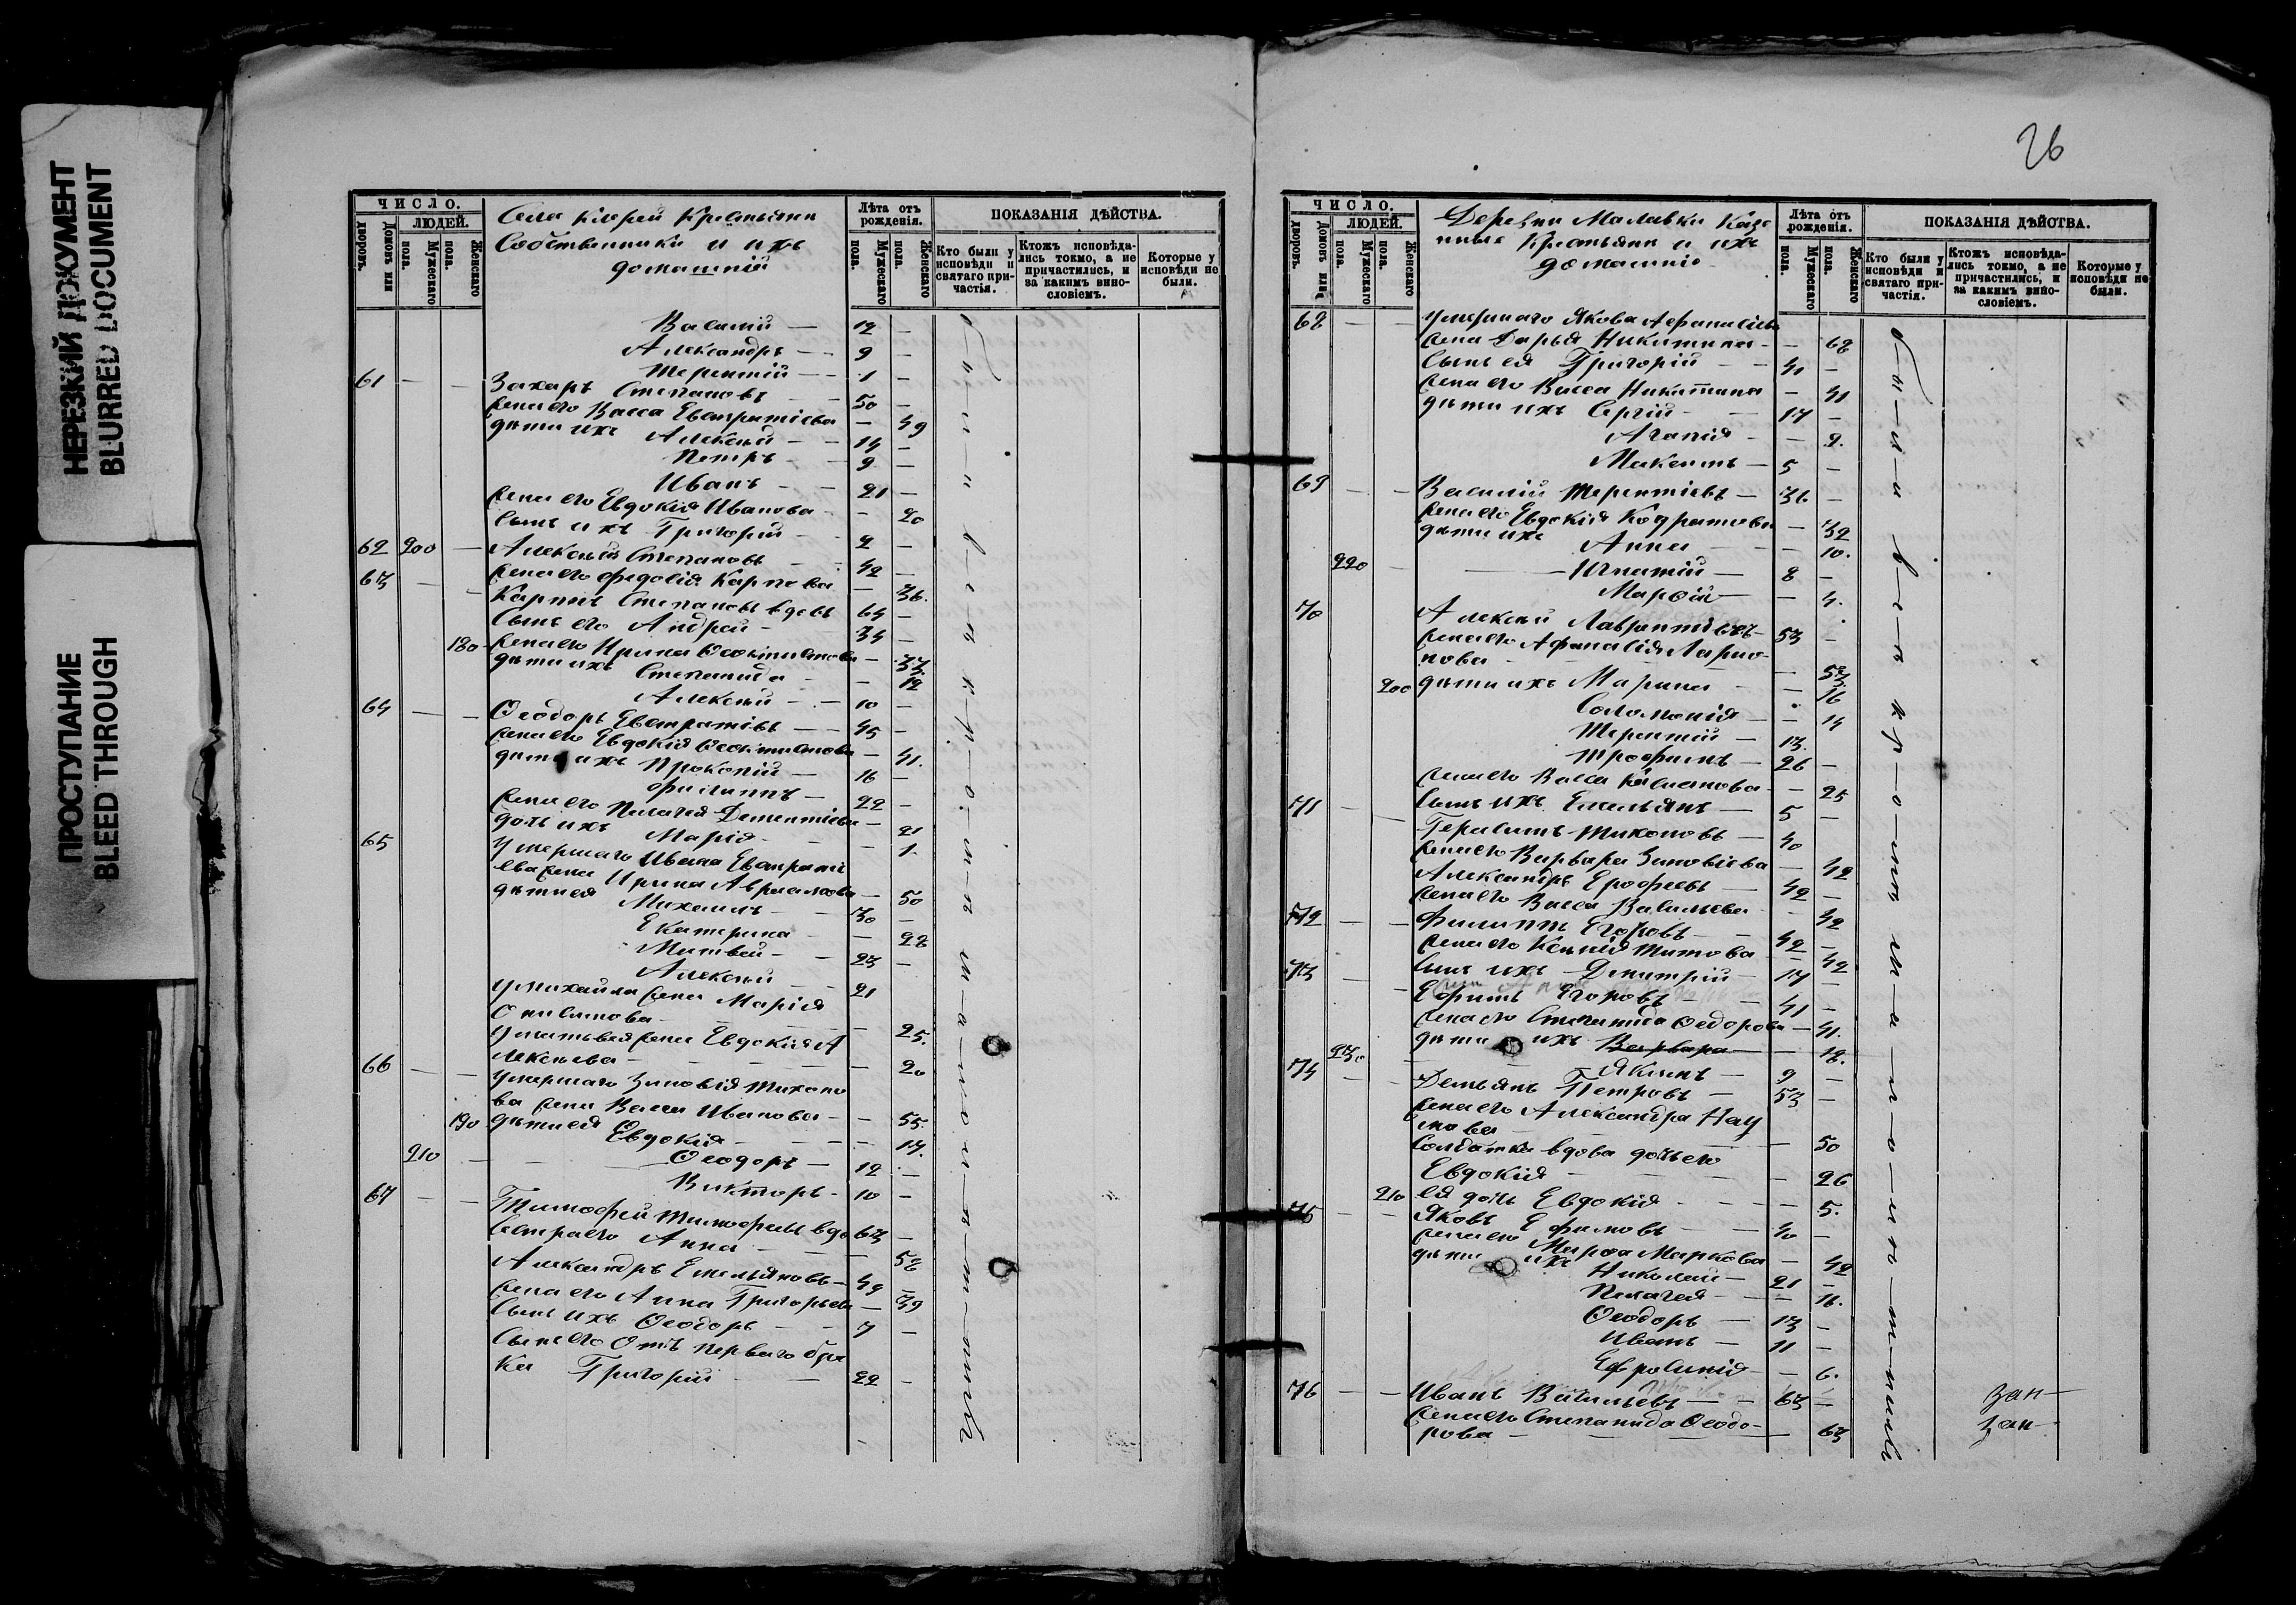 НЕРЕЗКИЙ ДОКУМЕНТ
BLURRED DOCUMENT
ПРОСТУПАНИЕ
BLEED THROUGH
ЧИСЛО.
Домовъ или дворовъ.
ЛЮДЕЙ.
Мужескаго пола.
Женскаго пола.
Села Крестьяни
Собственники и ихъ
домашніи
Лѣта отъ рожденія.
Мужескаго пола.
Женскаго пола.
ПОКАЗАНІЯ ДѢЙСТВА.
Кто были у исповѣди и святаго причастія.
Ктожъ исповѣдались токмо, а не причастились, и за какимъ винословіемъ.
Которые у исповѣди не были.
Василій — 12 —
Александръ — 9 —
Терентій — 1 —
61 — — Захаръ Степановъ 50 —
жена его Васса Евстратіева — 49
дѣти ихъ Алексѣй — 14 —
Петръ — 9 —
Иванъ — 21 —
жена его Евдокія Иванова — 20
сынъ ихъ Григорій — 2 —
62 200 — Алексѣй Степановъ 42 —
жена его Федосія Карпова — 36.
63 — — Карпъ Степановъ вдовъ 64 —
сынъ его Андрей — 34 —
180 жена его Ирина Феоктистова — 33.
дѣти ихъ Степанида — 12
Алексѣй — 10 —
64 — — Ѳеодоръ Евстратіевъ — 45 —
жена его Евдокія Феоктистова — 41.
дѣти ихъ Прокопій — 16 —
Филиппъ — 22 —
жена его Пелагея Дементіева — 21
дочь ихъ Марія — 1.
65 Умершаго Ивана Евстратіева жена Ирина Аврамова — 50
дѣти ея Михаилъ — 30 —
Екатерина — 28
Матвей — 23 —
Алексѣй 21
У Михаила жена Марія
Онисимова — 25.
У Матвея жена Евдокія А
лексѣева — 20
66 — — Умершаго Зиновія Тихоно
ва жена Васса Иванова — 55.
190 дѣти ея Евдокія — 17.
210 — Ѳеодоръ — 12 —
Викторъ — 10 —
67 — — Тимофей Тимофеевъ вдо 63 —
сестра его Анна — 58
Александръ Емельяновъ — 49 —
жена его Анна Григорьева — 39
сынъ ихъ Ѳеодоръ — 7 —
сынъ его отъ перваго бра
ка Григорій — 22 —
были в семъ
26
ЧИСЛО.
Домовъ или дворовъ.
ЛЮДЕЙ.
Мужескаго пола.
Женскаго пола.
Деревни Малавки Казе
нные Крестьяни и ихъ
домашніе
Лѣта отъ рожденія.
Мужескаго пола.
Женскаго пола.
ПОКАЗАНІЯ ДѢЙСТВА.
Кто были у исповѣди и святаго причастія.
Ктожъ исповѣдались токмо, а не причастились, и за какимъ винословіемъ.
Которые у исповѣди не были.
68 — — Умершаго Якова Афанасіева
жена Дарья Никитина — 68
сынъ ея Григорій — 41 —
жена его Васса Никитина — 41
дѣти ихъ Сергій — 17 —
Агапія — 9.
Максимъ — 5 —
69 — — Василій Терентіевъ — 36 —
жена его Евдокія Кодратова — 32
дѣти ихъ Анна — 10.
220 — Игнатій — 8 —
Марѳа — 4.
70 Алексѣй Лаврентіевъ 53 —
жена его Афанасія Ларио
нова — 53.
200 дѣти ихъ Марина — 16
Соломонія — 14
Терентій — 13.
Трофимъ — 26 —
жена его Васса — 25
сынъ ихъ Емельянъ — 5 —
71 — — Герасимъ Тихоновъ — 40
жена его Варвара Зиновіева — 42
Александръ Ерофеевъ — 42 —
жена его Васса Васильева — 42
72 — — Филиппъ Егоровъ — 42 —
жена его Ксенія Титова — 42
сынъ ихъ Димитрій — 17 —
73 — — Ефимъ Егоровъ — 41 —
жена его Степанида Ѳедорова — 41.
дѣти ихъ Варвара — 18.
230 Якимъ — 9 —
74 — — Демьянъ Петровъ — 53 —
жена его Александра Нау
мова — 50
Солдатка вдова дочь его
Евдокія — 26
210 ея дочь Евдокія — 5.
75 — — Яковъ Ефимовъ — 40 —
жена его Марѳа Маркова — 42
дѣти ихъ Николай — 21 —
Пелагея — 16.
Ѳеодоръ — 13 —
Иванъ — 11 —
Ефросинія — 6.
76 — — Иванъ Васильевъ — 63 — зан
жена его Степанида Ѳеодо- зан
рова — 63